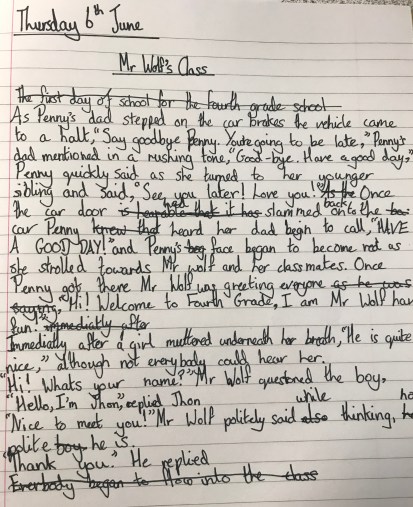 Thursday 6th June
Mr Wolf's Class
The first day of school for the fourth grade school
As Penny's dad stepped on the car brakes the vehicle came
to a halt, "Say goodbye Penny. You're going to be late," Penny's
dad mentioned in a rushing tone, "Good-bye. Have a good day,"
Penny quickly said as she turned to her younger
sibling and said, "See you later! Love you!" As the Once
the car door is hearable that it has had slammed back onto the
car Penny knew that heard her dad begin to call, "HAVE
A GOOD DAY!" and Penny's face began to become red as
she strolled towards Mr wolf and her classmates. Once
Penny got there Mr Wolf was greeting everyone as he was
saying, "Hi! Welcome to Fourth Grade, I am Mr Wolf hav
fun! immediatly after
Immediatly after a girl muttered underneath her breath, "He is quite
nice," although not everybody could hear her.
"Hi! Whats your name?" Mr Wolf questoned the boy,
"Hello, I'm Jhon", replied Jhon
"Nice to meet you!" Mr Wolf politely said also while thinking, ho
polite boy he is.
"Thank you." He replied
Everbody began to flow into the class